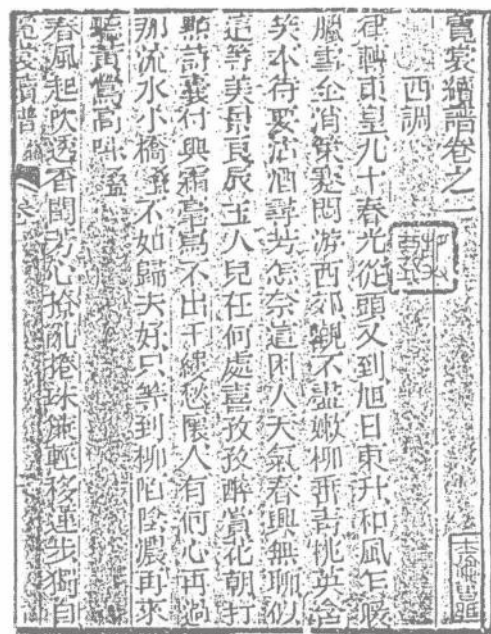 霓裳續譜卷之一
西調
律轉東皇九十春光從頭又到旭日東升和風乍暖
臘雪全消策蹇悶游西郊觀不盡嫩柳舒青桃英含
笑不待要沽酒尋芳怎奈這困人天氣春興無聊似
這等美景良辰玉人兒在何處喜孜孜醉賞花朝打
點詩囊付興霜毫寫不出千縷愁懷人有何心再過
那流水小橋疊不如歸去好只等到柳陌陰濃再來
聽黃鶯高叫疊
春風起吹透香閨芳心撩亂捲珠簾輕移蓮步獨自
霓裳續譜